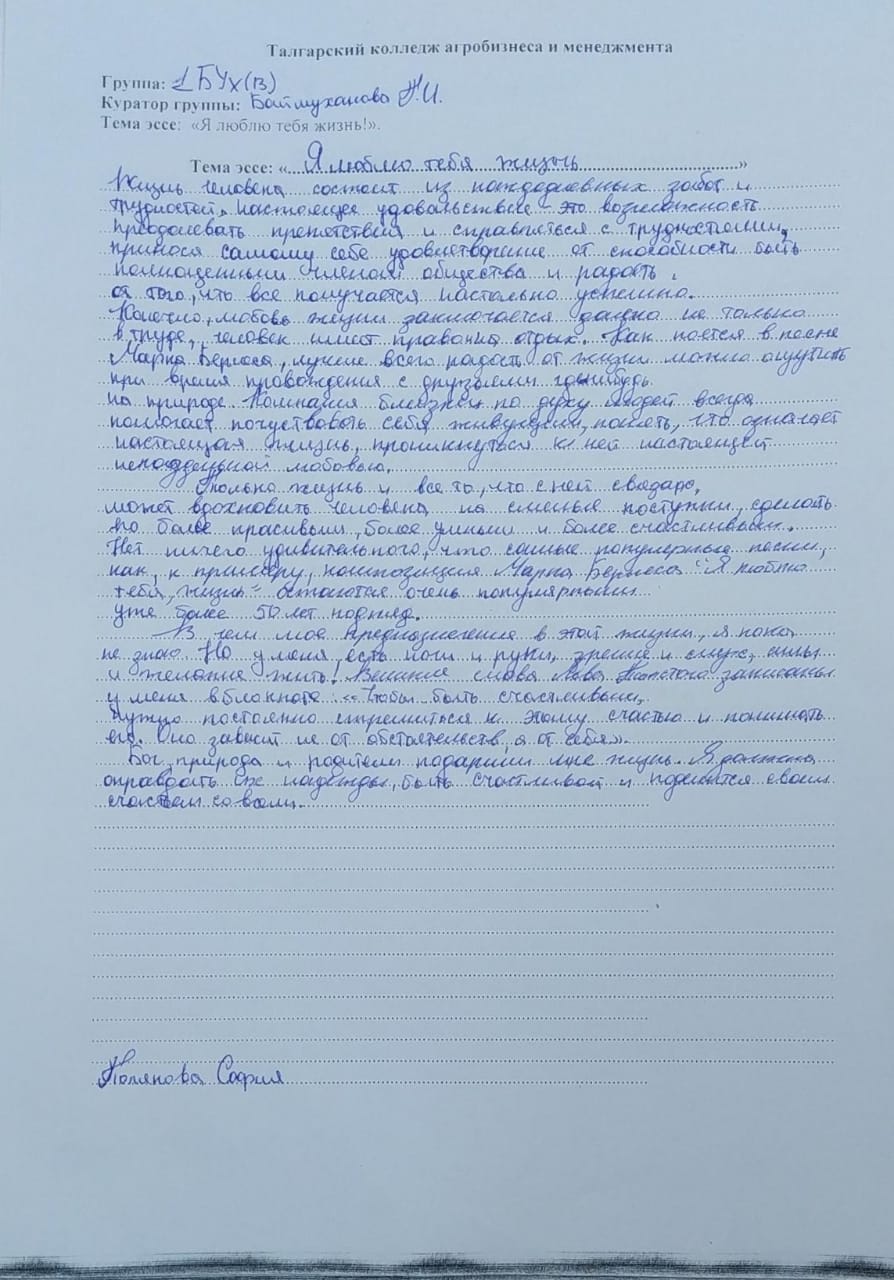 Талгарский колледж агробизнеса и менеджмента
Группа: 1 БУх(в)
Куратор группы: Баймуханова Ж.И.
Тема эссе: «Я люблю тебя жизнь!».
Тема эссе: «Я люблю тебя жизнь»
Жизнь человека состоит из каждодневных забот и
трудностей. Настоящее удовольствие – это возможность
преодолевать препятствия и справляться с трудностями,
принося самому себе удовлетворение от способности быть
полноценными членом общества и радость
от того, что все получается настолько успешно.
Конечно, любовь жизни заключается далеко не только
в труде, человек имеет право на отдых. Как поется в песне
Марка Бернеса, лучше всего радость от жизни можно ощутить
при время провождения с друзьями где-нибудь
на природе. Компания близких по духу людей всегда
помогает почуствовать себя живущим, понять, что означает
настоящая жизнь, проникнуться к ней настоящей
неподдельной любовью.
Только жизнь и все то, что с ней связано,
может вдохновить человека на смелые поступки, сделать
его более красивым, более умным и более счастливым.
Нет ничего удивительного, что самые популярные песни,
как, к примеру, композиция Марка Бернеса "Я люблю
тебя, жизнь" остаются очень популярными
уже более 50 лет подряд.
В чем мое предназначение в этой жизни, я пока
не знаю. Но у меня есть ноги и руки, зрение и слух, силы
и желание жить. Великие слова Льва Толстого записаны
у меня в блокноте: «Чтобы быть счастливым,
нужно постоянно стремиться к этому счастью и понимать
его. Оно зависит не от обстоятельств, а от себя».
Бог, природа и родители подарили мне жизнь. Я должна
оправдать их надежды, быть счастливой и поделится своим
счастьем со всеми.
София